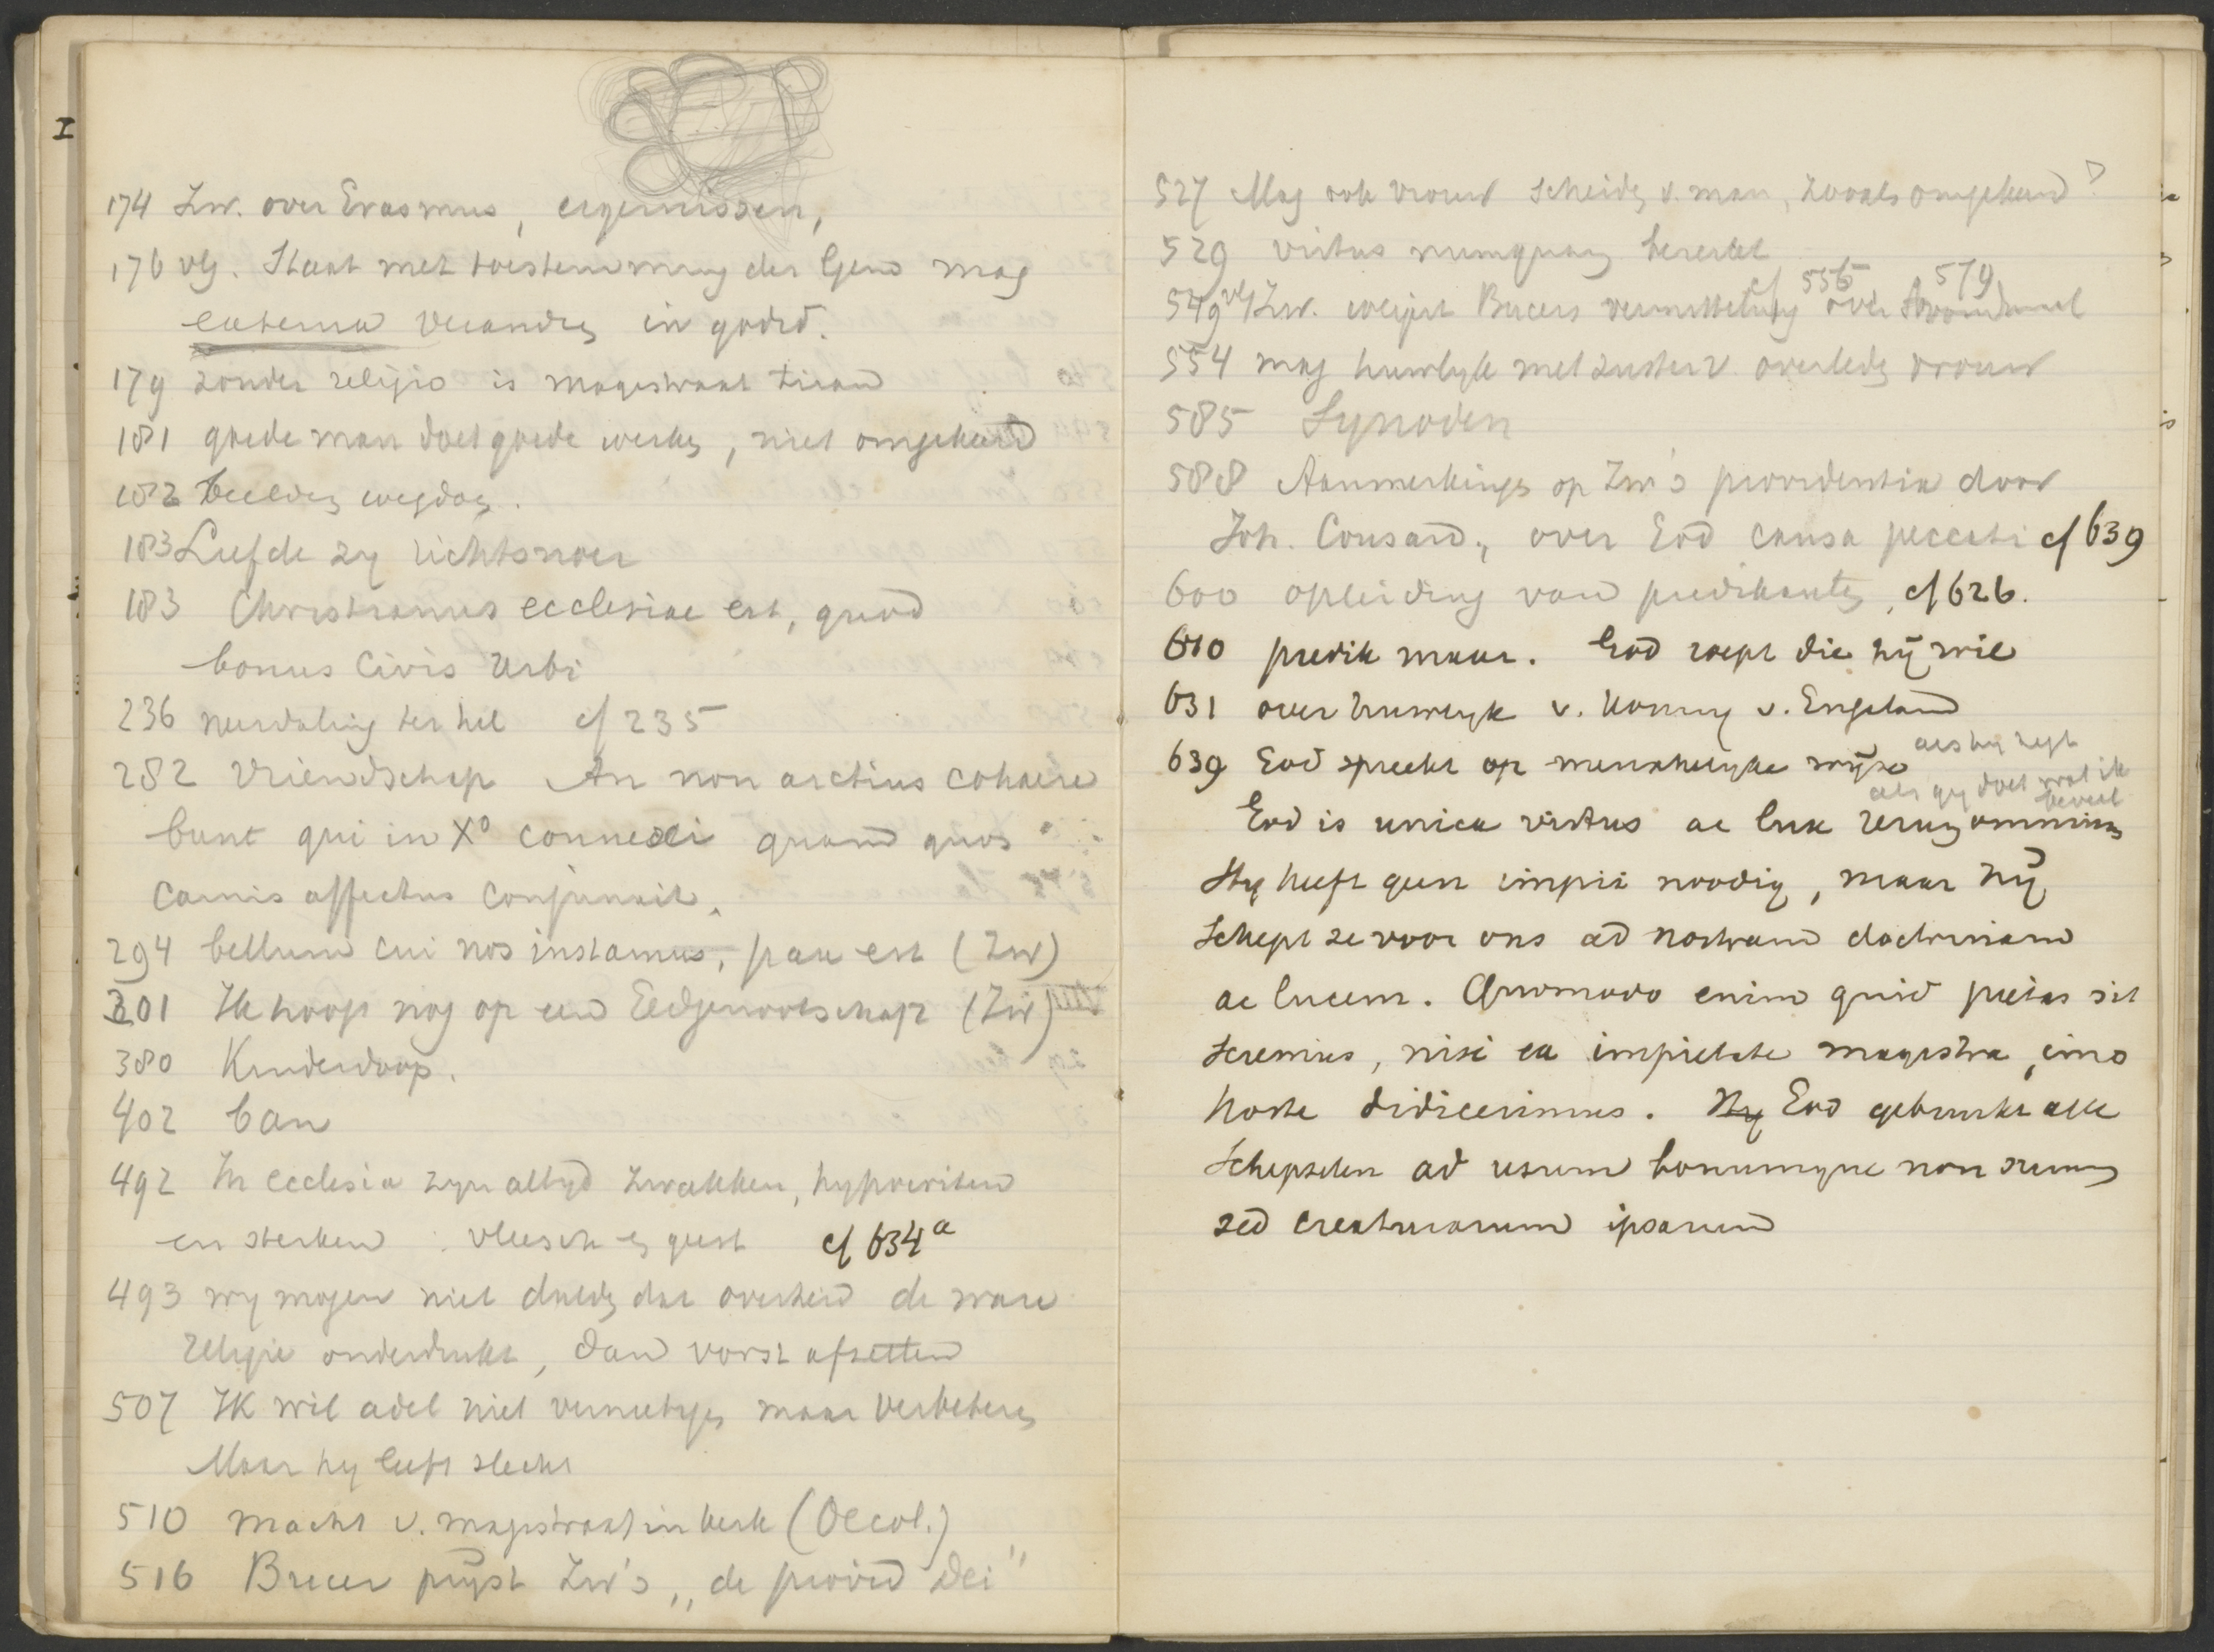 I
174 Zw. over Erasmus, ergernissen,
176 vlg. Staat met toestemming der Gem mag
externa veranderen in godsd.
179 zonder religio is magistraat tiran
181 goede man doet goede werken, niet omgekeerd
182 beelden wegdoen.
183 Liefde zij richtsnoer
183 Christianus ecclesiae est, quod
bonus civis urbi
236 nerdaling ter hel cf 235
282 Vriendschap An non arctius cohaere
bunt qui in X° connexi quam quos
carnis affectus conjunxit.
294 bellum cui nos instamus, pax est (Zw)
301 Ik hoop nog op een Eedgenootschap (Zw)
380 Kinderdoop.
402 ban
492 In ecclesia zyn altyd zwakken, hypocriten
en sterken : vleesch en geest cf 634a
493 wy mogen niet dulden dat overheid de ware
religie onderdrukt, dan vorst afzetten
507 Ik wil adel niet vernietigen maar verbeteren
Maar hy leeft slecht
510 macht v. magistraat in kerk (Oecol.)
516 Bucer prijst Zw's „de provid Dei"
527 Mag ook vrouw scheiden v. man, zooals omgekeerd?
529 virtus numquam
cf 556 579
549 vlg Zw. weigert Bucers vermitteling over Avondmaal
554 mag huwelyk met zuster v. overleden vrouw
585 Synoden
588 Aanmerkingen op Zw's providentia door
Joh. Cousard., over God causa peccati cf 639
600 opleiding van predikanten, cf 626.
610 predik maar. God roept die hij wil
631 over huwelyk v. Koning v. England
639 God spreekt op menschelyke wijze als hy zegt
als gy doet wat ik
beveel
God is unica virtus ac lux rerum omnium
Hy heeft geen impii noodig, maar hij
schept ze voor ons ad nostram doctrinam
ac lucem. Quomodo enim quid pietas sit
sciremus, nisi ex impietate magistra, imo
hoste didicerimus. Hy God gebruikt alle
schepselen ad usum bonumque non suum
sed creaturarum ipsarum